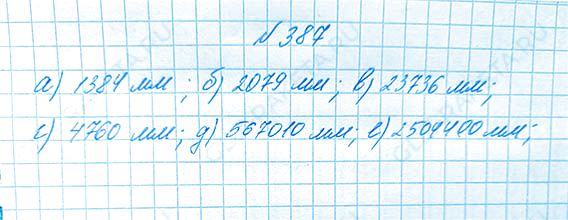 № 387
а) 1384 мм; б) 2079 мм; в) 23736 мм;
г) 4760 мм; д) 567010 мм; е) 2504400 мм;